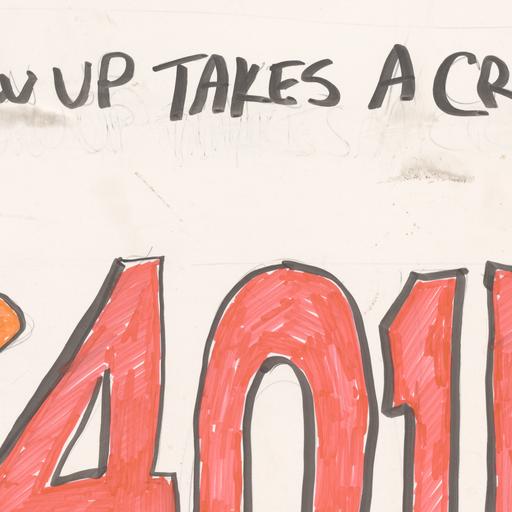 UP TAKES A CR
401